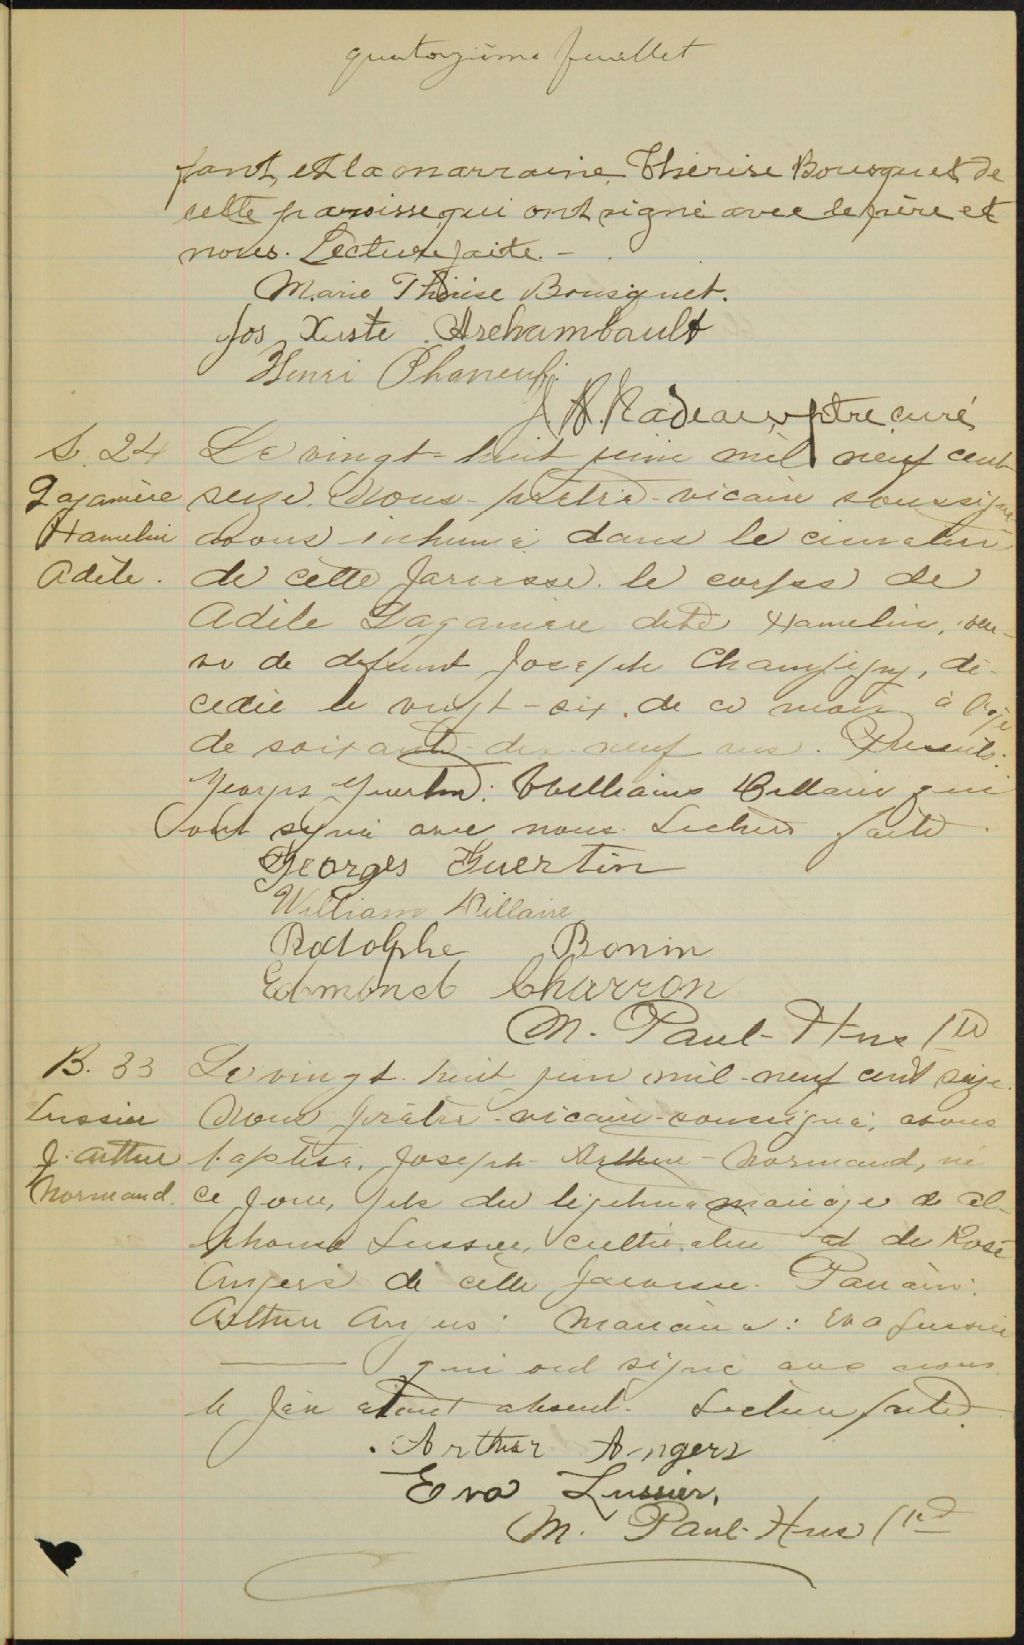 quatorzième feuillet
fant, et la marraine, Thérèse Bousquet de
cette paroisse qui ont signé avec le père et
nous. Lecture faite. -
Marie Thérèse Bousquet.
Jos Xiste Archambault
Henri Phaneuf.
J. A. Nadeau, ptre, curé
S. 24
Le vingt-huit juin mil neuf cent
Laganière
seize. Nous- prêtre-vicaire soussigné
Hamelin
avons inhumé dans le cimetière
Adèle.
de cette paroisse. le corps de
Adèle Laganière dite Hamelin, veu-
ve de defunt Joseph Champigny, dé-
cédée le vingt-six de ce mois à l'age
de soixante-dix-neuf ans. Présents:
Georges Guertin: Williams Dillaire qui
ont signé avec nous. Lecture faite.
Georges Guertin
William Dillaire
Rodolphe Bonin
Edmond Charron
M. Paul-Hus Ptr
B. 33
Le vingt-huit juin mil-neuf cent seize.
Lussier
Nous prêtre-vicaire-soussigné, avons
J. Arthur
baptisé, Joseph-Arthur-Normand, né
Normand.
ce jour, fils du légitime mariage de Al-
phonse Lussier, cultivateur et de Rose
Angers de cette paroisse. Parrain:
Arthur Angers: Marraine: Eva Lussier
qui ont signé avec nous
le père étant absent. Lecture faite.
Arthur Angers
Eva Lussier,
M. Paul-Hus Ptr